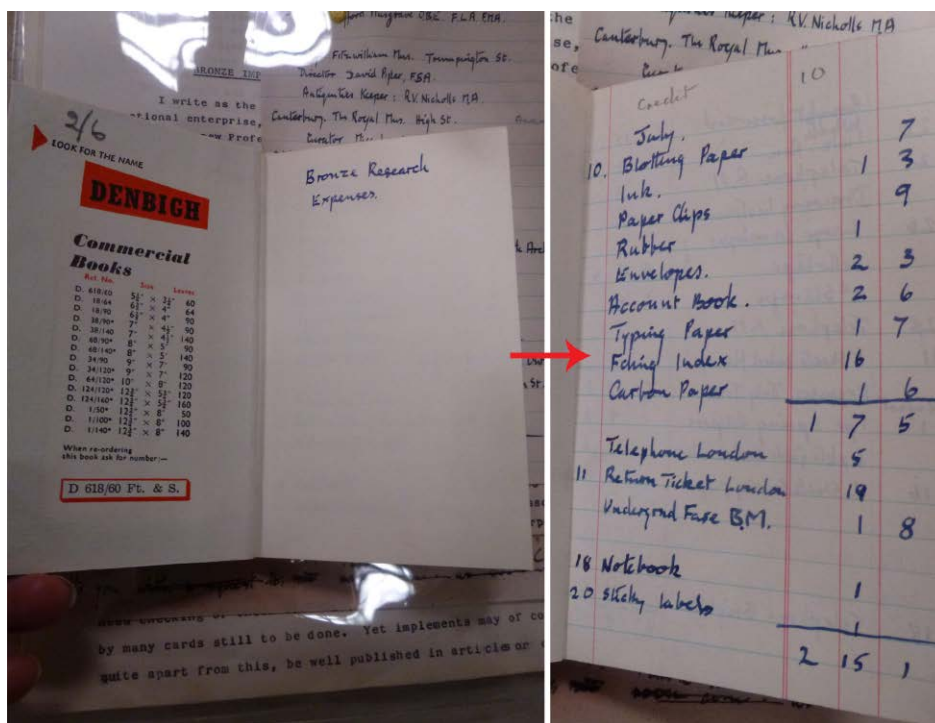 Musgrave OBE. F.L.A. FMA.
Fitzwilliam Mus. Trumpington St.
Director David Piper, FSA.
Antiquities Keeper: R.V. Nicholls MA
Canterbury. The Royal Mus. High St.
Curator
BRONZE IMP
I write as the
tional enterprise,
Profe
2/6
LOOK FOR THE NAME
DENBIGH
Commercial
Books
Ref. No. Size Leaves
D. 618/60 5½" × 3½" 60
D. 18/64 6½" × 4" 64
D. 18/90 6½" × 4" 90
D. 38/90* 7" × 4½" 90
D. 38/140 7" × 4½" 140
D. 68/90* 8" × 5" 90
D. 68/140* 8" × 5" 140
D. 34/90 9" × 7" 90
D. 34/120* 9" × 7" 120
D. 64/120* 10" × 8" 120
D. 124/120* 12¾" × 5¾" 120
D. 124/160* 12¾" × 5¾" 160
D. 1/50* 12¾" × 8" 50
D. 1/100* 12¾" × 8" 100
D. 1/140* 12¾" × 8" 140
When re-ordering
this book ask for number:—
D 618/60 Ft. & S.
Bronze Research
Expenses.
by many cards still to be done. Yet implements may of co
quite apart from this, be well published in articles or
Keeper: R.V. Nicholls MA
Canterbury. The Royal Mus.
10
Credit
July.
10. Blotting Paper 7
Ink. 1 3
Paper Clips 9
Rubber 1
Envelopes. 2 3
Account Book. 2 6
Typing Paper 1 7
Filing Index 16
Carbon Paper 1 6
1 7 5
Telephone London 5
11 Return Ticket London 19
Undergrnd Fare B.M. 1 8
18 Notebook 1
20 sticky labels 1
2 15 1